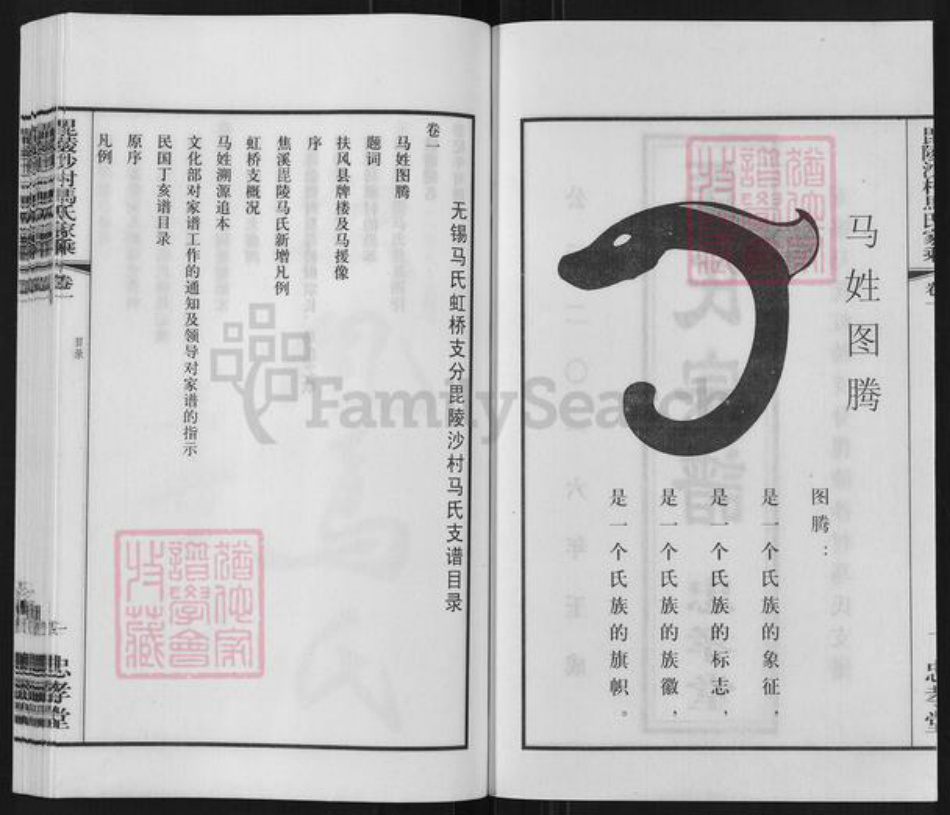 马姓图腾
图腾：
是一个氏族的象征，
是一个氏族的标志，
是一个氏族的族徽，
是一个氏族的旗帜。
毘陵沙村馬氏家乘
卷一
忠孝堂
无锡马氏虹桥支分毘陵沙村马氏支谱目录
卷一
马姓图腾
题词
扶风县牌楼及马援像
序
焦溪毘陵马氏新增凡例
虹桥支概况
马姓溯源追本
文化部对家谱工作的通知及领导对家谱的指示
民国丁亥谱目录
原序
凡例
毘陵沙村馬氏家乘
卷一
目录
一
忠孝堂
FamilySearch
猶他家譜學會收藏